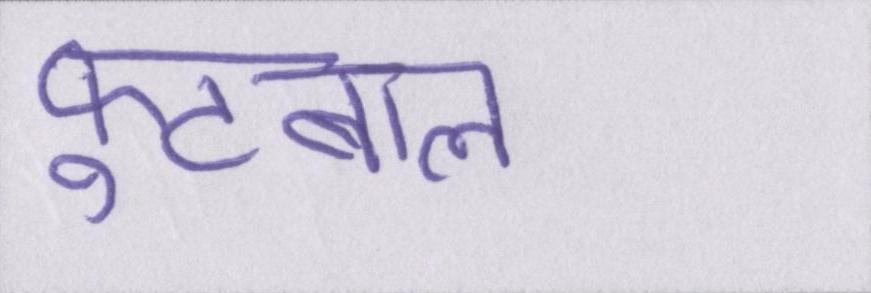 फुटबाल